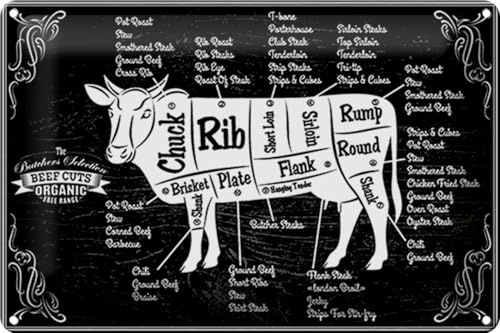 Pot Roast
Stew
Smothered Steak
Ground Beef
Cross Rib
Rib Roast
Rib Steaks
Rib Eye
Roast Of Steak
T-bone
Porterhouse
Club Steak
Tenderloin
Strip Steaks
Strips & Cubes
Sirloin Steaks
Top Sirloin
Tenderloin
Tri-tip
Strips & Cubes
Pot Roast
Stew
Smothered Steak
Ground Beef
Chuck
Rib
Short Loin
Sirloin
Rump
Round
Flank
Hanging Tender
Brisket
Plate
Shank
Shank
The
Butchers Selection
BEEF CUTS
ORGANIC
FREE RANGE
Strips & Cubes
Pot Roast
Stew
Smothered Steak
Chicken Fried Steak
Ground Beef
Oven Roast
Oyster Steak
Pot Roast
Stew
Corned Beef
Barbecue
Butcher Steaks
Chili
Ground Beef
Braise
Ground Beef
Short Ribs
Stew
Skirt Steak
Flank Steak
«london Broil»
Jerky
Strips For Stir-fry
Chili
Ground Beef